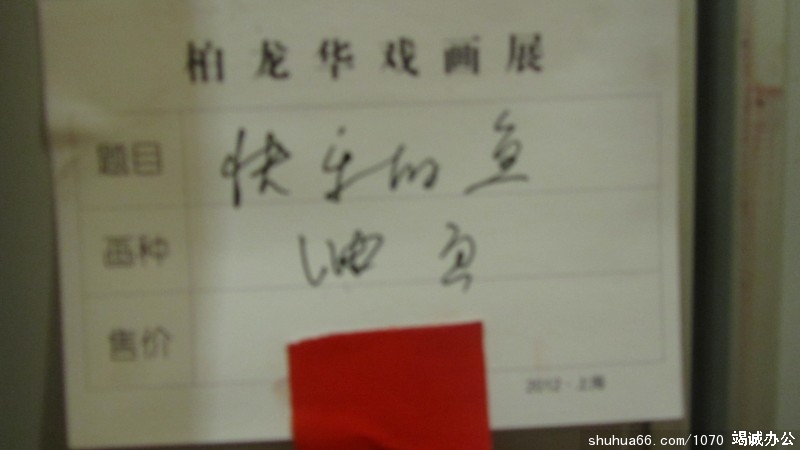 柏龙华戏画展
题目 快乐的鱼
画种 油画
售价
2012·上海
shuhua66.com/1070 竭诚办公